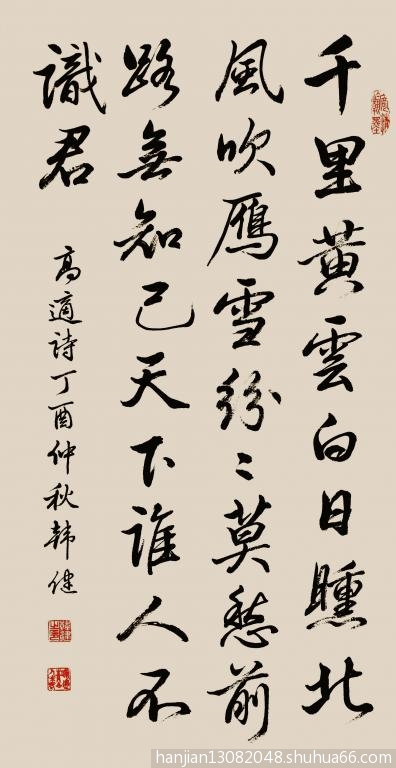 千里黄雲白日曛北
風吹鴈雪紛〻莫愁前
路無知己天下誰人不
識君
高適詩丁酉仲秋韩健
hanjian13082048.shuhua66.com